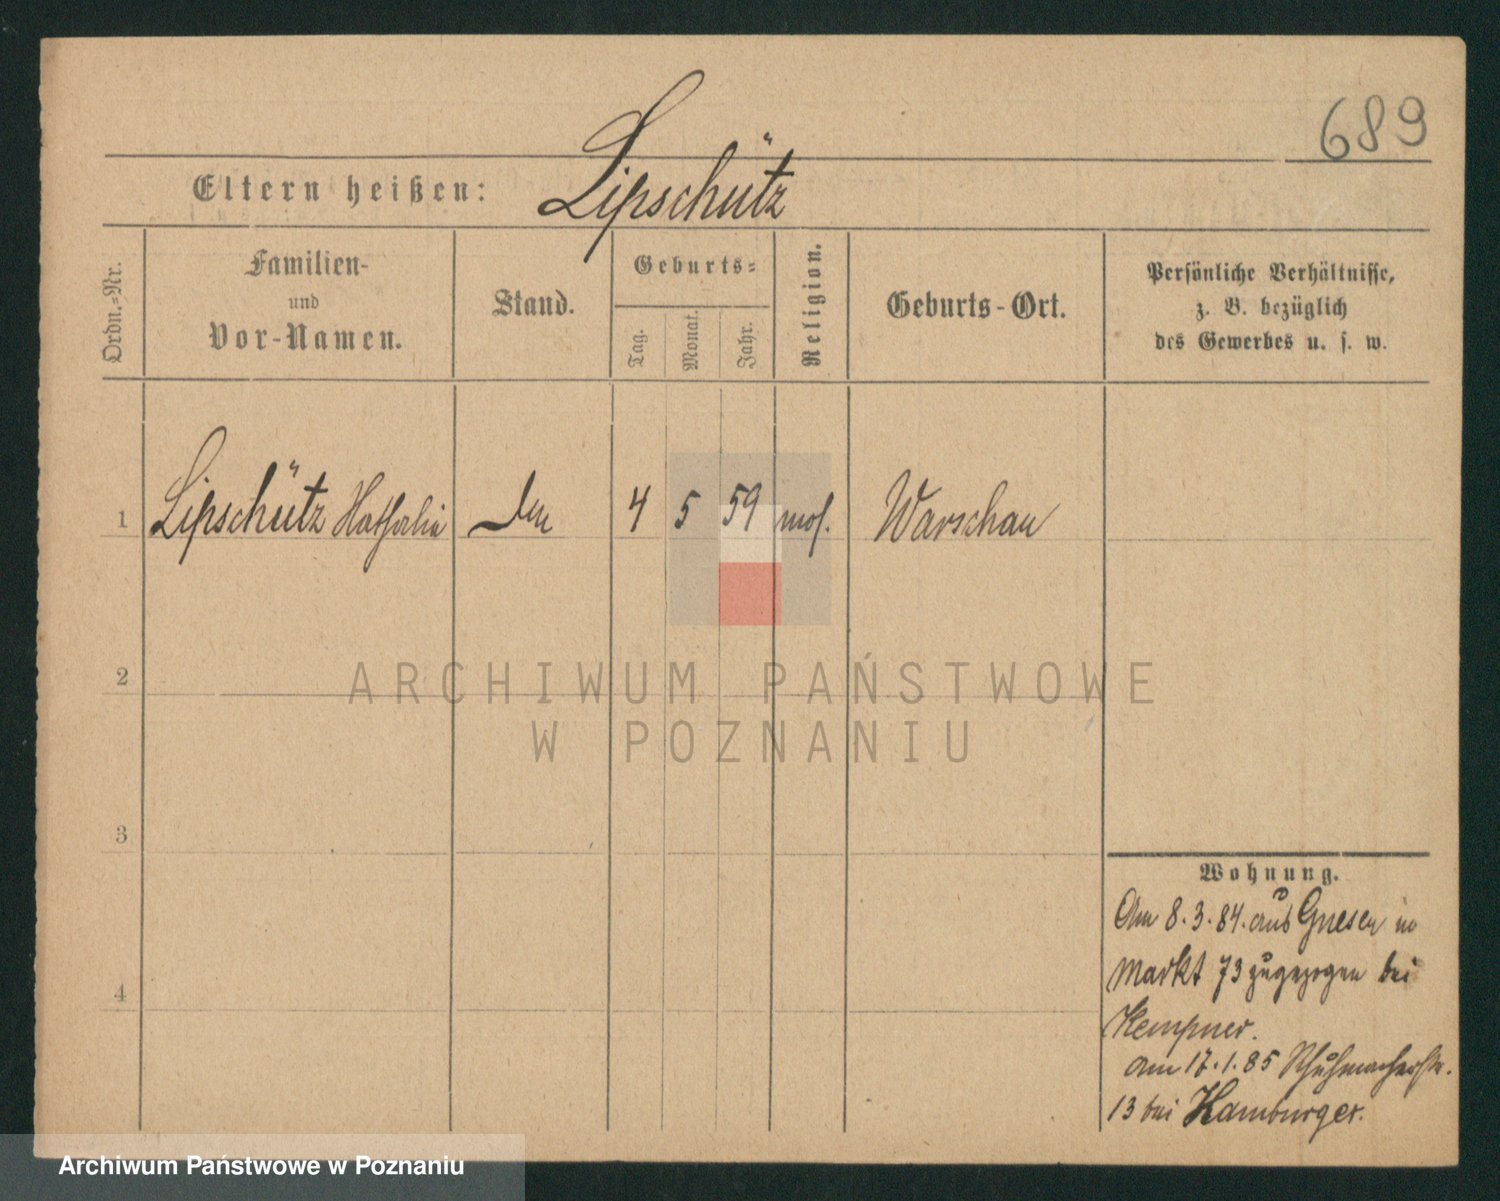 689
Eltern heißen: Lipschütz
Ordn.-Nr.
Familien-
und
Vor-Namen.
Stand.
Geburts-
Tag.
Monat.
Jahr.
Religion.
Geburts-Ort.
Persönliche Verhältnisse,
z. B. bezüglich
des Gewerbes u. s. w.
1 Lipschütz 4 5 59 mos. Warschau
2
ARCHIWUM PAŃSTWOWE
W POZNANIU
3
4
Wohnung.
Am 8.3.84. aus Gnesen in
Markt 73 zugezogen bei
Kempner.
am 17.1.85 Schuhmacherstr.
13 bei Hamburger.
Archiwum Państwowe w Poznaniu